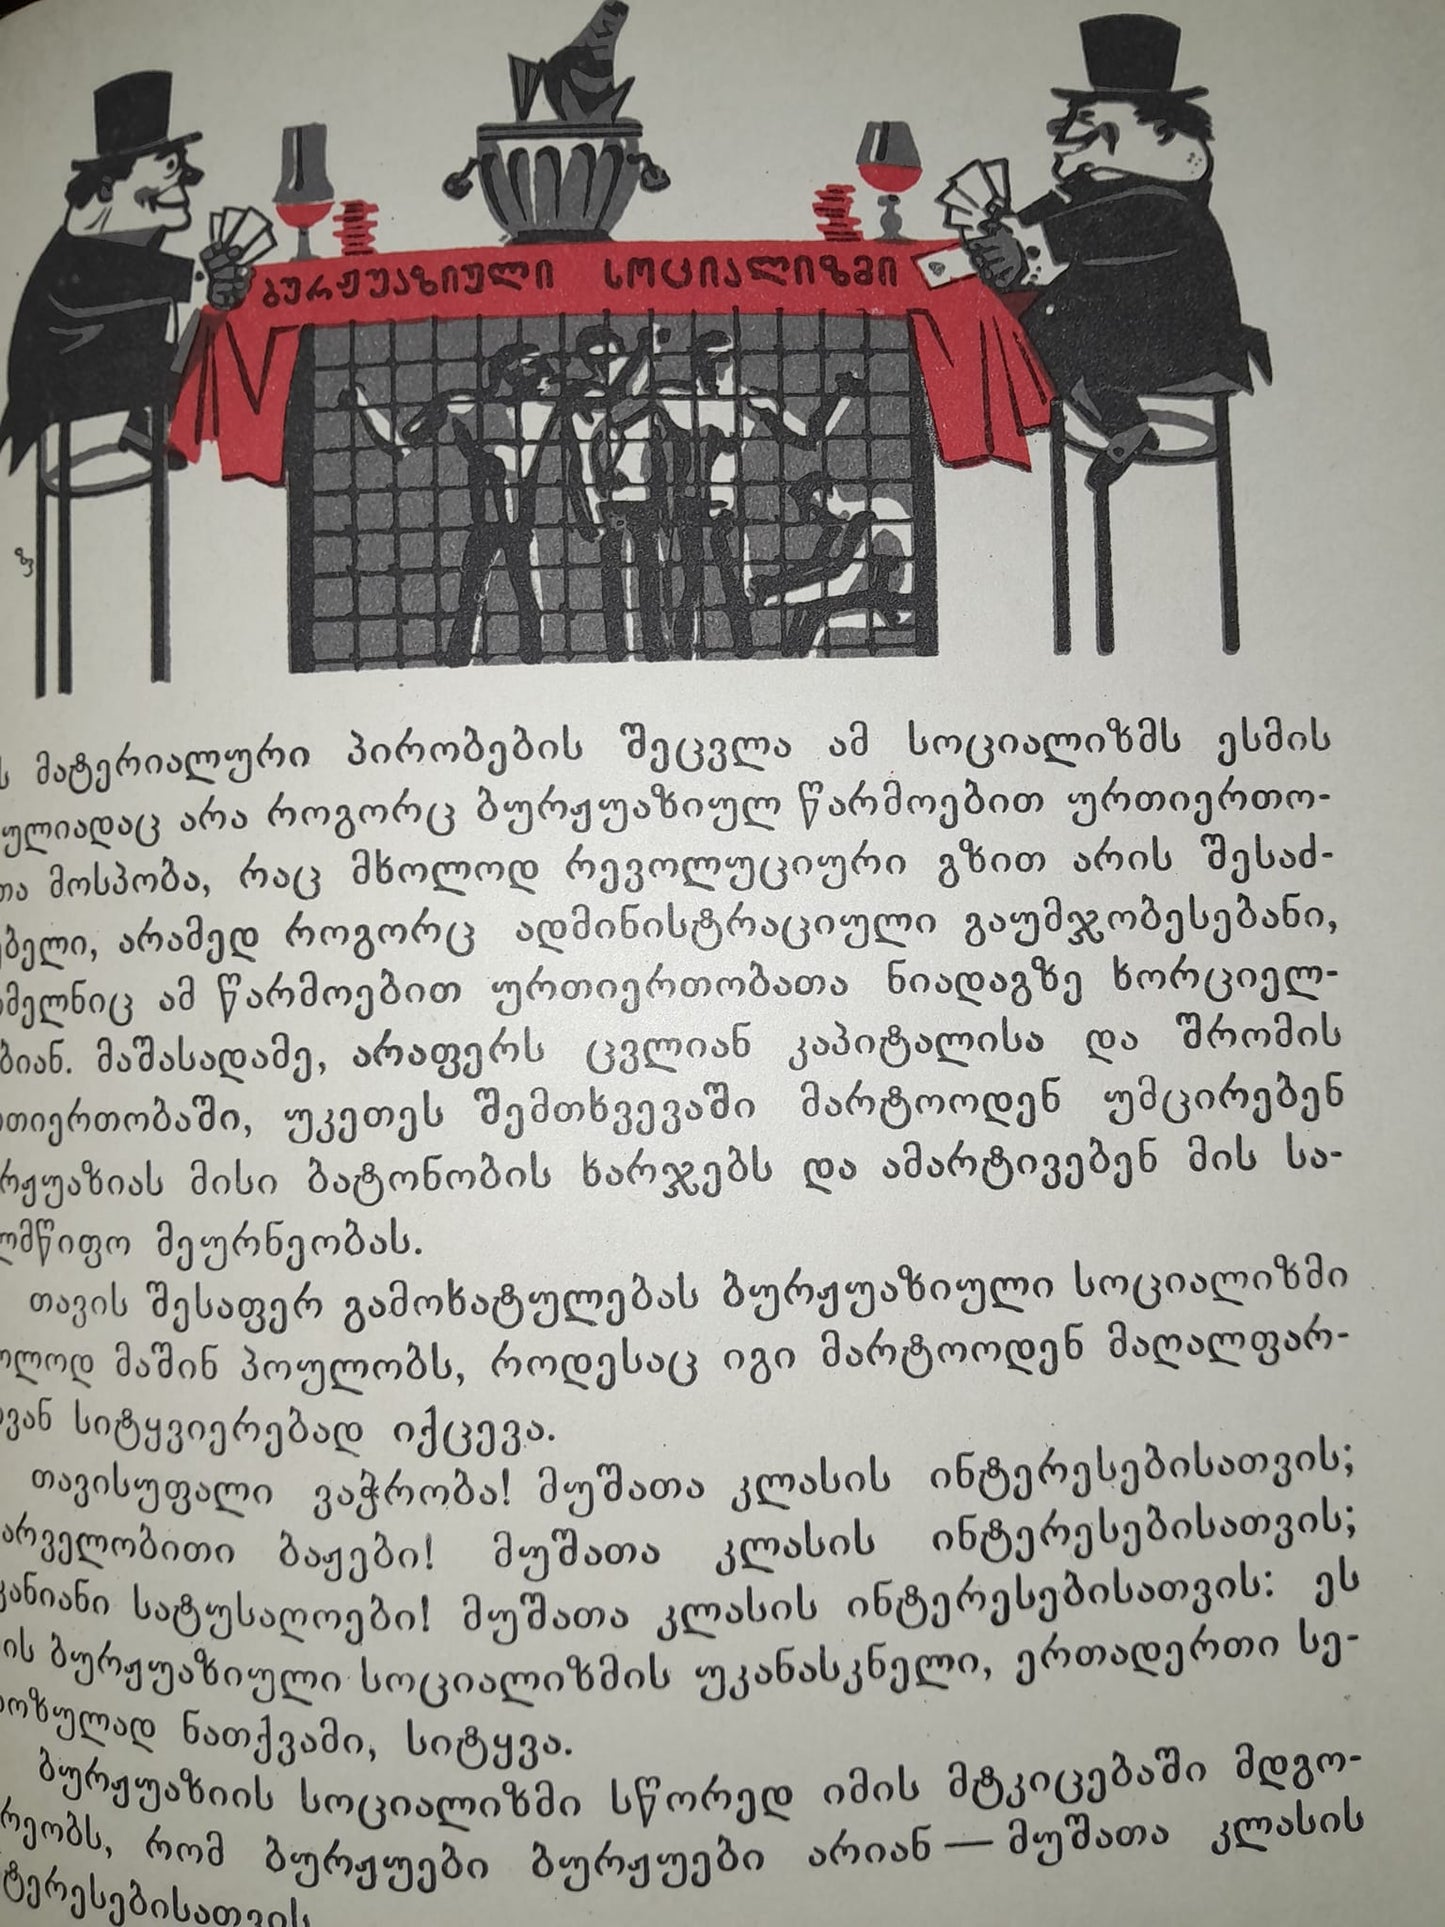 ბურჟუაზიული სოციალიზმი
მატერიალური პირობების შეცვლა ამ სოციალიზმს ესმის
არა როგორც ბურჟუაზიულ წარმოებით ურთიერთო-
მოსპობა, რაც მხოლოდ რევოლუციური გზით არის შესაძ-
არამედ როგორც ადმინისტრაციული გაუმჯობესებანი,
ამ წარმოებით ურთიერთობათა ნიადაგზე ხორციელ-
ბიან. მაშასადამე, არაფერს ცვლიან კაპიტალისა და შრომის
თიერთობაში, უკეთეს შემთხვევაში მარტოოდენ უმცირებენ
რჟუაზიას მისი ბატონობის ხარჯებს და ამარტივებენ მის სა-
ლმწიფო მეურნეობას.
თავის შესაფერ გამოხატულებას ბურჟუაზიული სოციალიზმი
ოლოდ მაშინ პოულობს, როდესაც იგი მარტოოდენ მაღალფარ-
ოვან სიტყვიერებად იქცევა.
თავისუფალი ვაჭრობა! მუშათა კლასის ინტერესებისათვის;
არველობითი ბაჟები! მუშათა კლასის ინტერესებისათვის;
კანიანი სატუსაღოები! მუშათა კლასის ინტერესებისათვის: ეს
ის ბურჟუაზიული სოციალიზმის უკანასკნელი, ერთადერთი სე-
იოზულად ნათქვამი, სიტყვა.
ბურჟუაზიის სოციალიზმი სწორედ იმის მტკიცებაში მდგო-
რეობს, რომ ბურჟუები ბურჟუები არიან — მუშათა კლასის
ტერესებისათვის